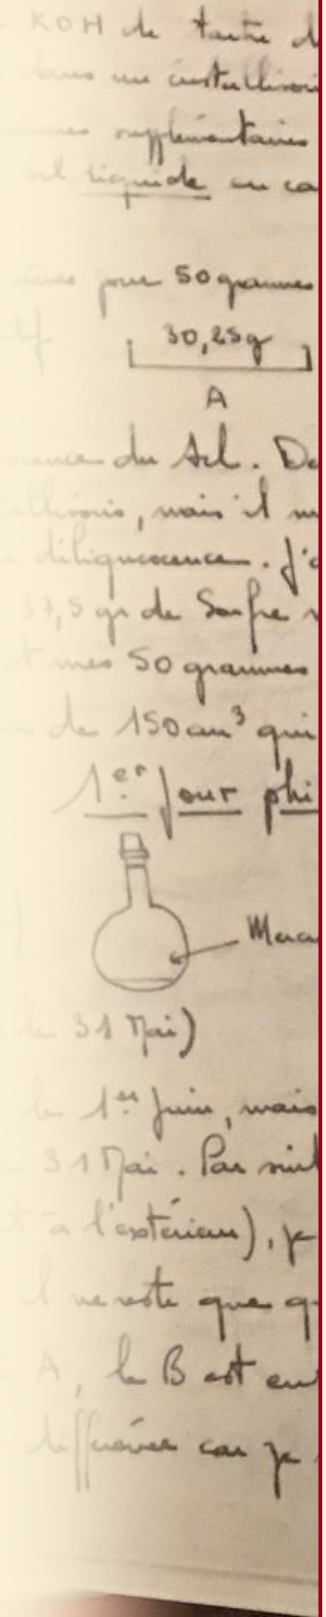 KOH de tartre d
dans un cristallisoi
supplémentaires
sel liquide au ca
pour 50 grammes
30,25g
A
du Sel. De
, mais il m
déliquescence. J'a
37,5 gr de Soufre
et mes 50 grammes
de 150 cm³ qui
1er Jour phi
Macé
le 31 Mai)
le 1er Juin, mais
31 Mai. Par suit
t à l'extérieur), je
il ne reste que q
A, le B est en
différer car je